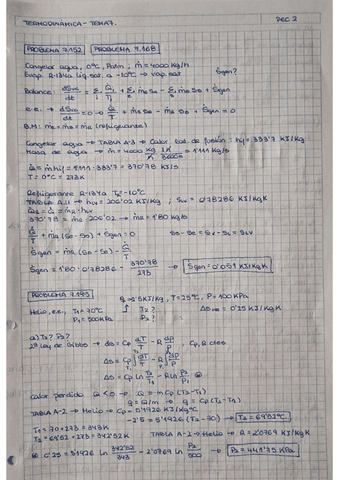 TERMODINÁMICA - TEMA 7. PEC 2
PROBLEMA 7.152 PROBLEMA 7.168
Congelar agua, 0ºC, Patm, ṁ = 4000 kg/h
Evap. R-134a líq. sat. a -10ºC → vap. sat Sgen?
Balance: dSvc/dt = Σ Q̇i/Ti + Σ ṁe se - Σ ṁs ss + Ṡgen
e.e. → dSvc/dt = 0 → Q̇/T + ṁe se - ṁs ss + Ṡgen = 0
B.M: ṁe = ṁs = ṁR (refrigerante)
Congelar agua → TABLA A-3 → Calor lat. de fusión: hif = 333'7 KJ/kg
Masa de agua → ṁ = 4000 kg/h 1h/3600s = 1'111 kg/s
Q̇ = ṁ hif = 1'111 · 333'7 = 370'78 KJ/s
T = 0ºC = 273K
Refrigerante R-134a TR = -10ºC
TABLA A-11 → hlv = 206'02 KJ/kg, slv = 0'78286 KJ/kgK
370'78 = ṁR · 206'02 → ṁR = 1'80 kg/s
Q̇/T + ṁR (se - ss) + Ṡgen = 0 ss - se = sv - sl = slv
Ṡgen = ṁR (ss - se) - Q̇/T
Ṡgen = 1'80 · 0'78286 - 370'78/273 → Ṡgen = 0'051 KJ/kgK
PROBLEMA 7.193
Helio, e.e., T1 = 70ºC T2?
P1 = 500KPa P2?
T = 25ºC, P = 100 KPa
a) T2? P2?
2ª Ley de Gibbs → ds = Cp dT/T - R dP/P, Cp, R ctes
Δs = Cp ∫ dT/T - R ∫ dP/P
Δs = Cp Ln T2/T1 - R Ln P2/P1
Calor perdido Q̇ < 0 → Q̇ = ṁ Cp (T2 - T1)
q = Q̇/ṁ → q = Cp (T2 - T1)
TABLA A-2 → Helio → Cp = 5'1926 KJ/kgºC
-2'5 = 5'1926 (T2 - 70) → T2 = 69'52ºC
T1 = 70 + 273 = 343K
T2 = 69'52 + 273 = 342'52K TABLA A-2 → Helio → R = 2'0769 KJ/kgK
0'25 = 5'1926 Ln 342'52/343 - 2'0769 Ln P2/500 → P2 = 441'75 KPa